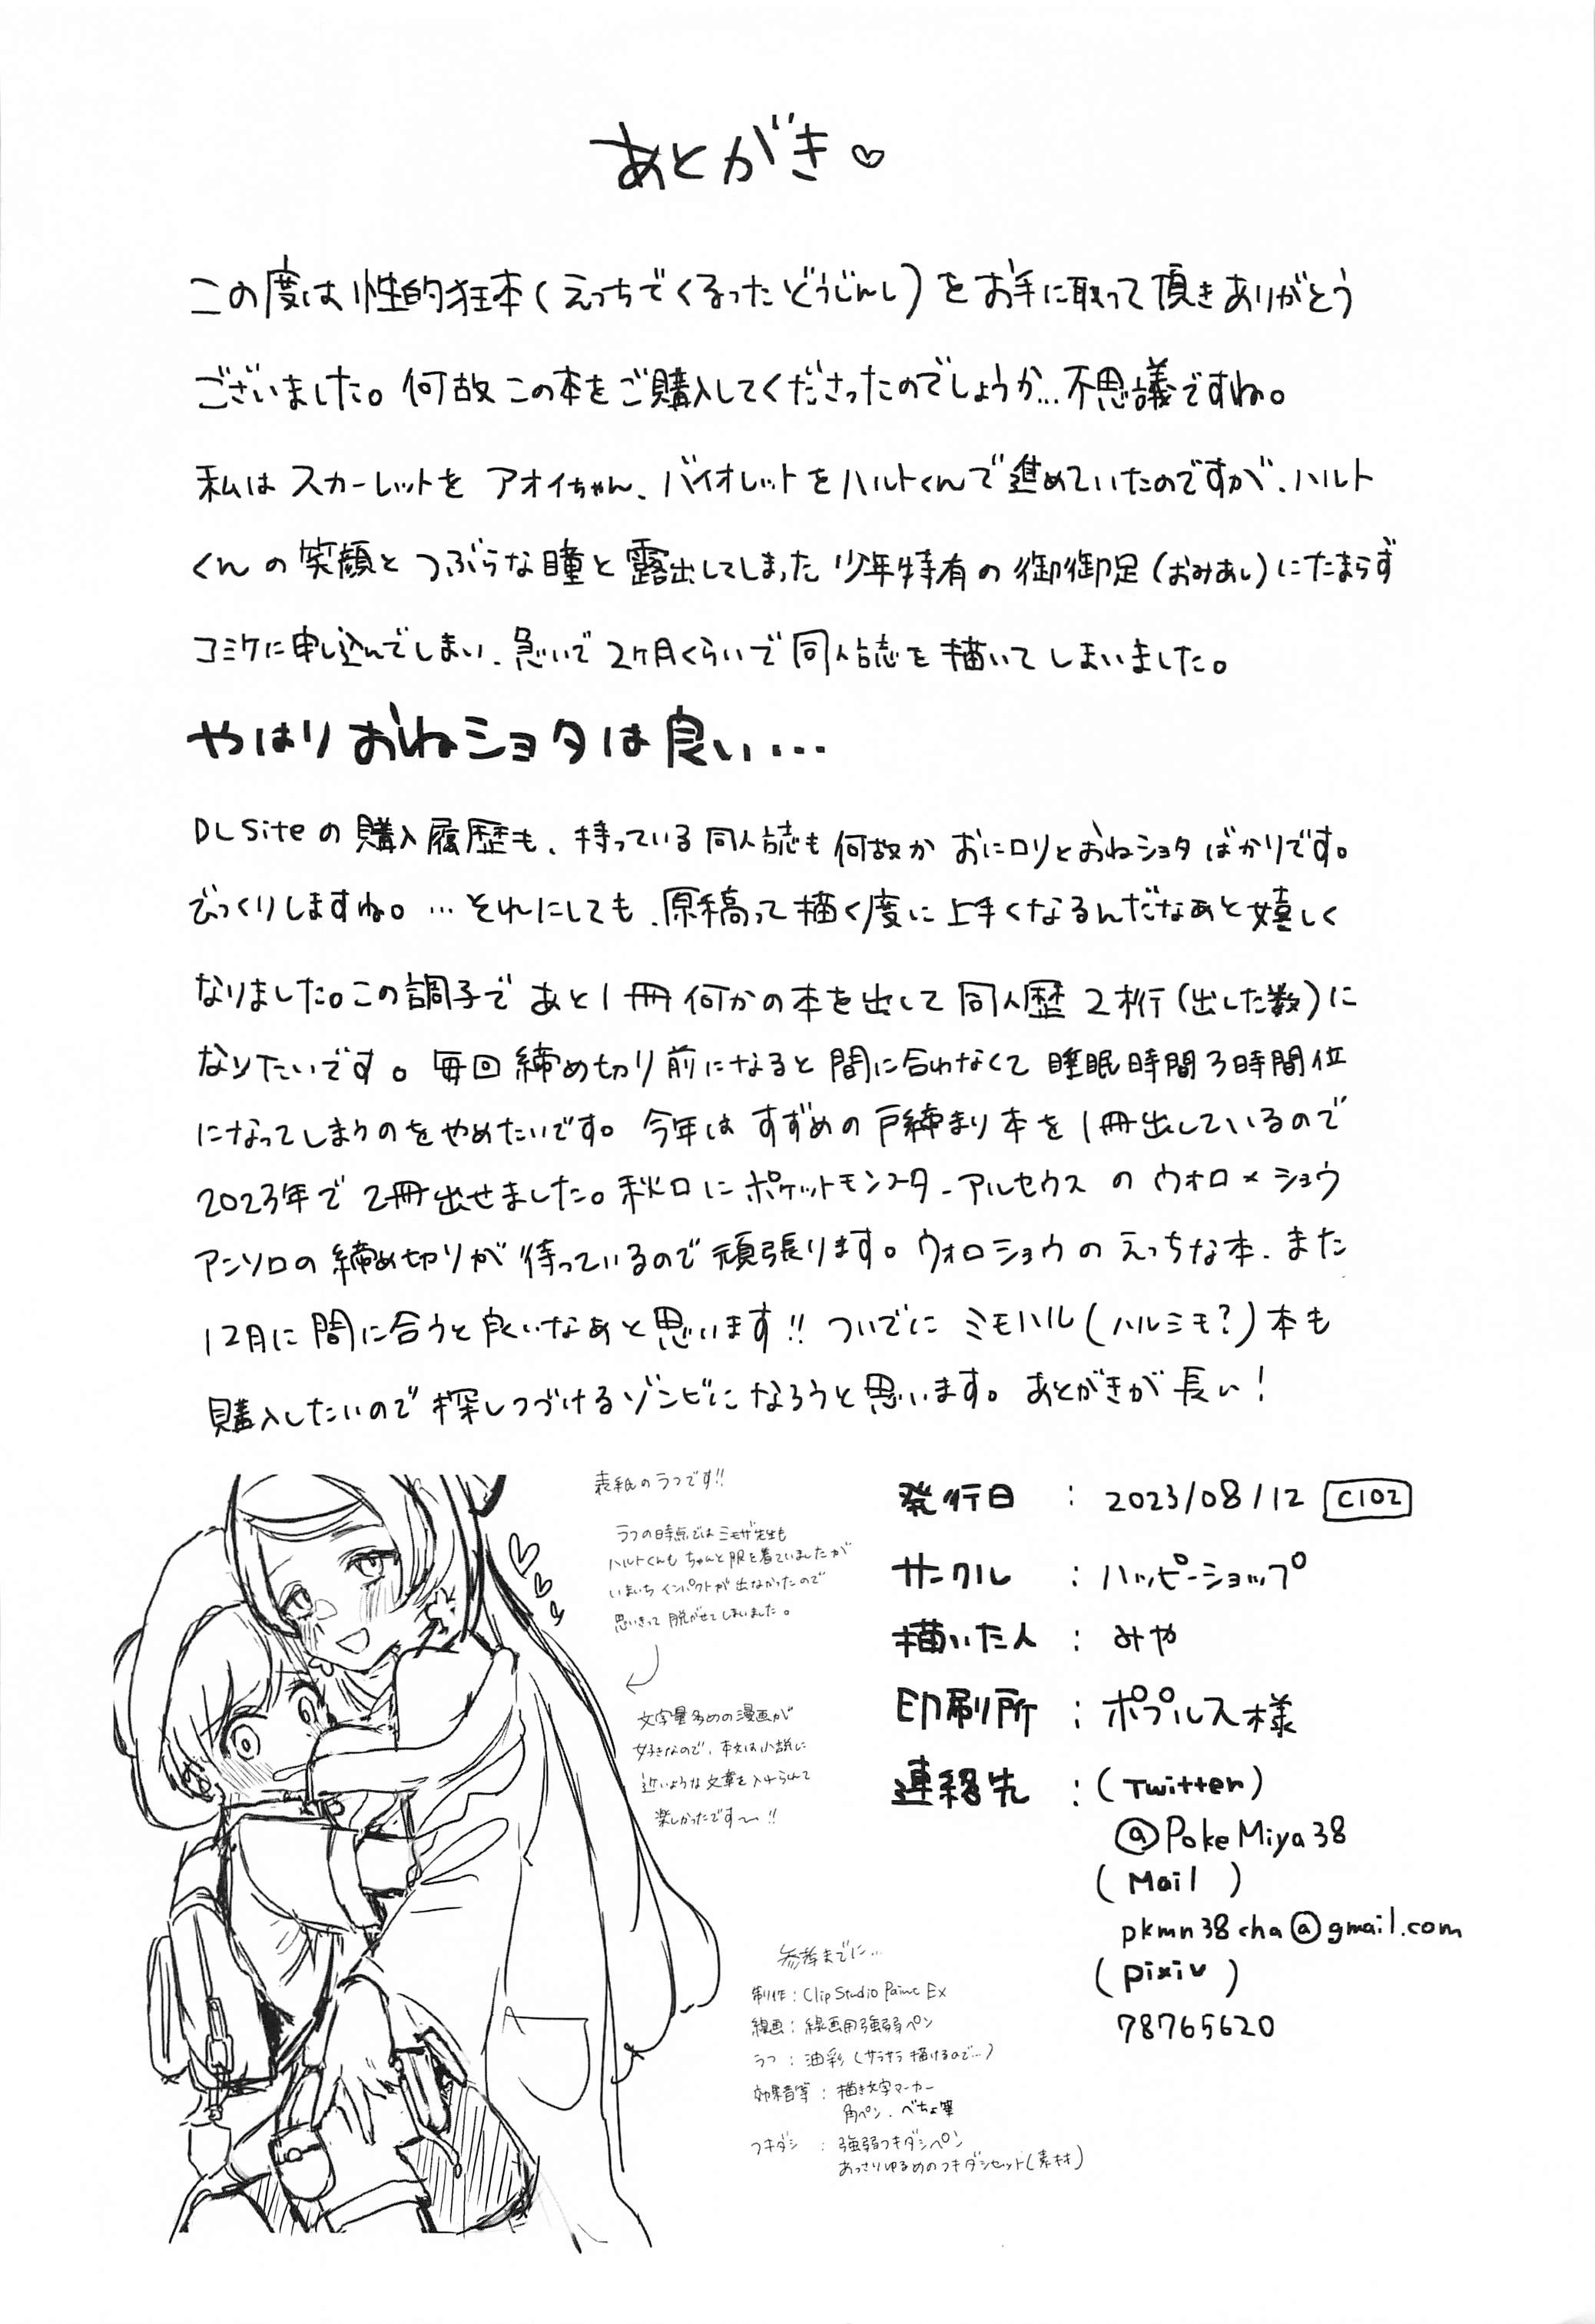 あとがき♡
この度は性的狂本(えっちでくるったどうじんし)をお手に取って頂きありがとう
ございました。何故この本をご購入してくださったのでしょうか…不思議ですね。
私はスカーレットをアオイちゃん、バイオレットをハルトくんで進めていたのですが、ハルト
くんの笑顔とつぶらな瞳と露出してしまった少年特有の御御足(おみあし)にたまらず
コミケに申し込んでしまい、急いで2ヶ月くらいで同人誌を描いてしまいました。
やはりおねショタは良い…
DLSiteの購入履歴も、持っている同人誌も何故かおにロリとおねショタばかりです。
びっくりしますね。…それにしても、原稿って描く度に上手くなるんだなあと嬉しく
なりました。この調子であと1冊何かの本を出して同人歴2桁(出した数)に
なりたいです。毎回締め切り前になると間に合わなくて睡眠時間3時間位
になってしまうのをやめたいです。今年はすずめの戸締まり本を1冊出しているので
2023年で2冊出せました。秋口にポケットモンスターアルセウスのウォロ×ショウ
アンソロの締め切りが待っているので頑張ります。ウォロショウのえっちな本、また
12月に間に合うと良いなあと思います!!ついでにミモハル(ハルミモ?)本も
購入したいので探しつづけるゾンビになろうと思います。あとがきが長い!
表紙のラフです!!
ラフの時点ではミモザ先生も
ハルトくんもちゃんと服を着ていましたが
いまいちインパクトが出なかったので
思いきって脱がせてしまいました。
文字量多めの漫画が
好きなので、本文は小説に
近いような文章を入れられて
楽しかったです〜!!
発行日 : 2023/08/12 C102
サークル : ハッピーショップ
描いた人 : みや
印刷所 : ポプルス様
連絡先 : (Twitter)
@PokeMiya38
(Mail)
pkmn38cha@gmail.com
(pixiv)
78765620
参考までに…
制作 : Clip Studio Paint Ex
線画 : 線画用強弱ペン
ラフ : 油彩(サラサラ描けるので…)
効果音等 : 描き文字マーカー
角ペン、べちょ筆
フキダシ : 強弱フキダシペン
あっさりゆるめのフキダシセット(素材)